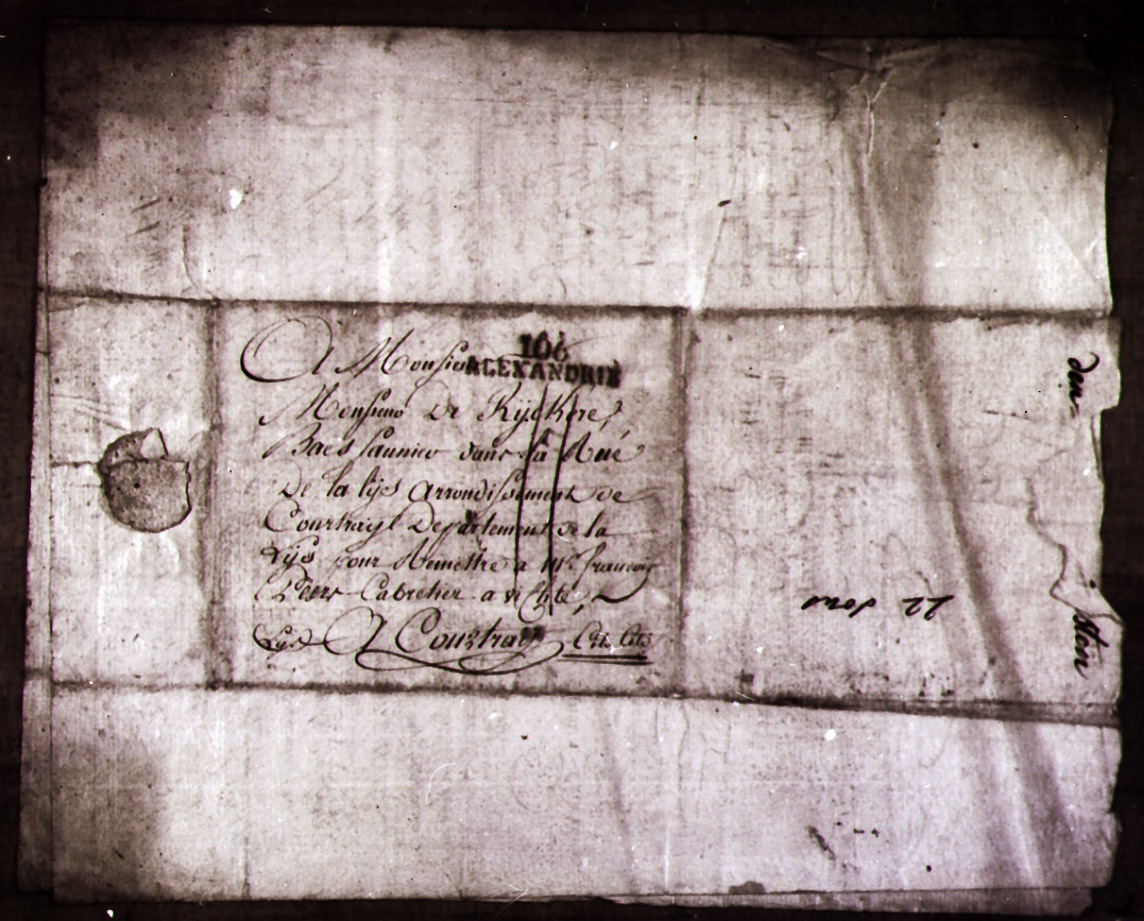 106
ALEXANDRIE
A Monsieur
Monsieur De Ryckere,
Baes Saunier dans la Rué
De la lijs arrondissement de
Courtrayt Departement de la
Lijs pour Remettre a Mr. francois
Peers Cabretier a vichte,
Lys A Courtray
22 sous